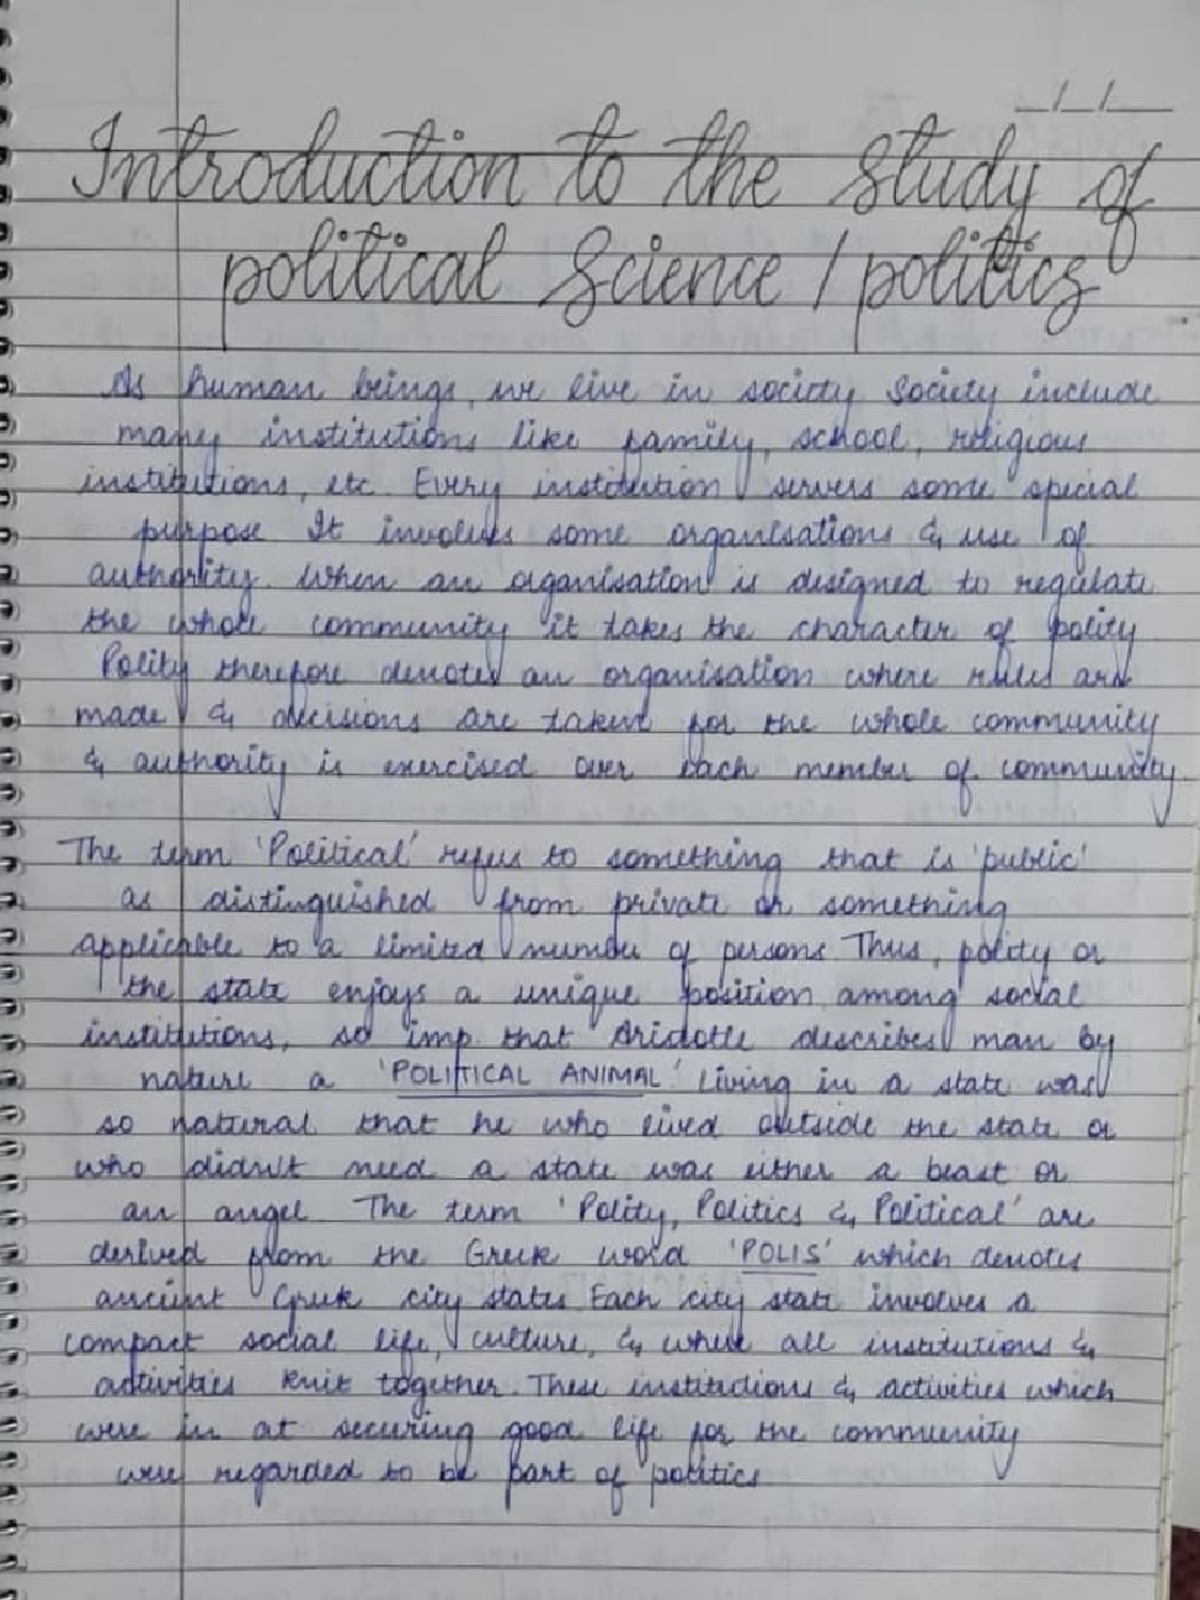 _/_/__
Introduction to the Study of
political Science / politics
As human beings, we live in society Society include
many institutions like family, school, religious
institutions, etc. Every institution servers some special
purpose It involves some organisations & use of
authority. When an organisation is designed to regulate
the whole community it takes the character of polity.
Polity therefore denotes an organisation where rules are
made & decisions are taken for the whole community
& authority is exercised over each member of community.
The term 'Political' refers to something that is 'public'
as distinguished from private or something
applicable to a limited number of persons Thus, polity or
the state enjoys a unique position among social
institutions, so imp. that Aristotle describes man by
nature a 'POLITICAL ANIMAL.' Living in a state was
so natural that he who lived outside the state or
who didn't need a state was either a beast or
an angel. The term 'Polity, Politics & Political' are
derived from the Greek word 'POLIS' which denotes
ancient Greek city states Each city state involves a
compact social life, culture, & where all institutions &
activities knit together. These institutions & activities which
were in at securing good life for the community
were regarded to be part of politics